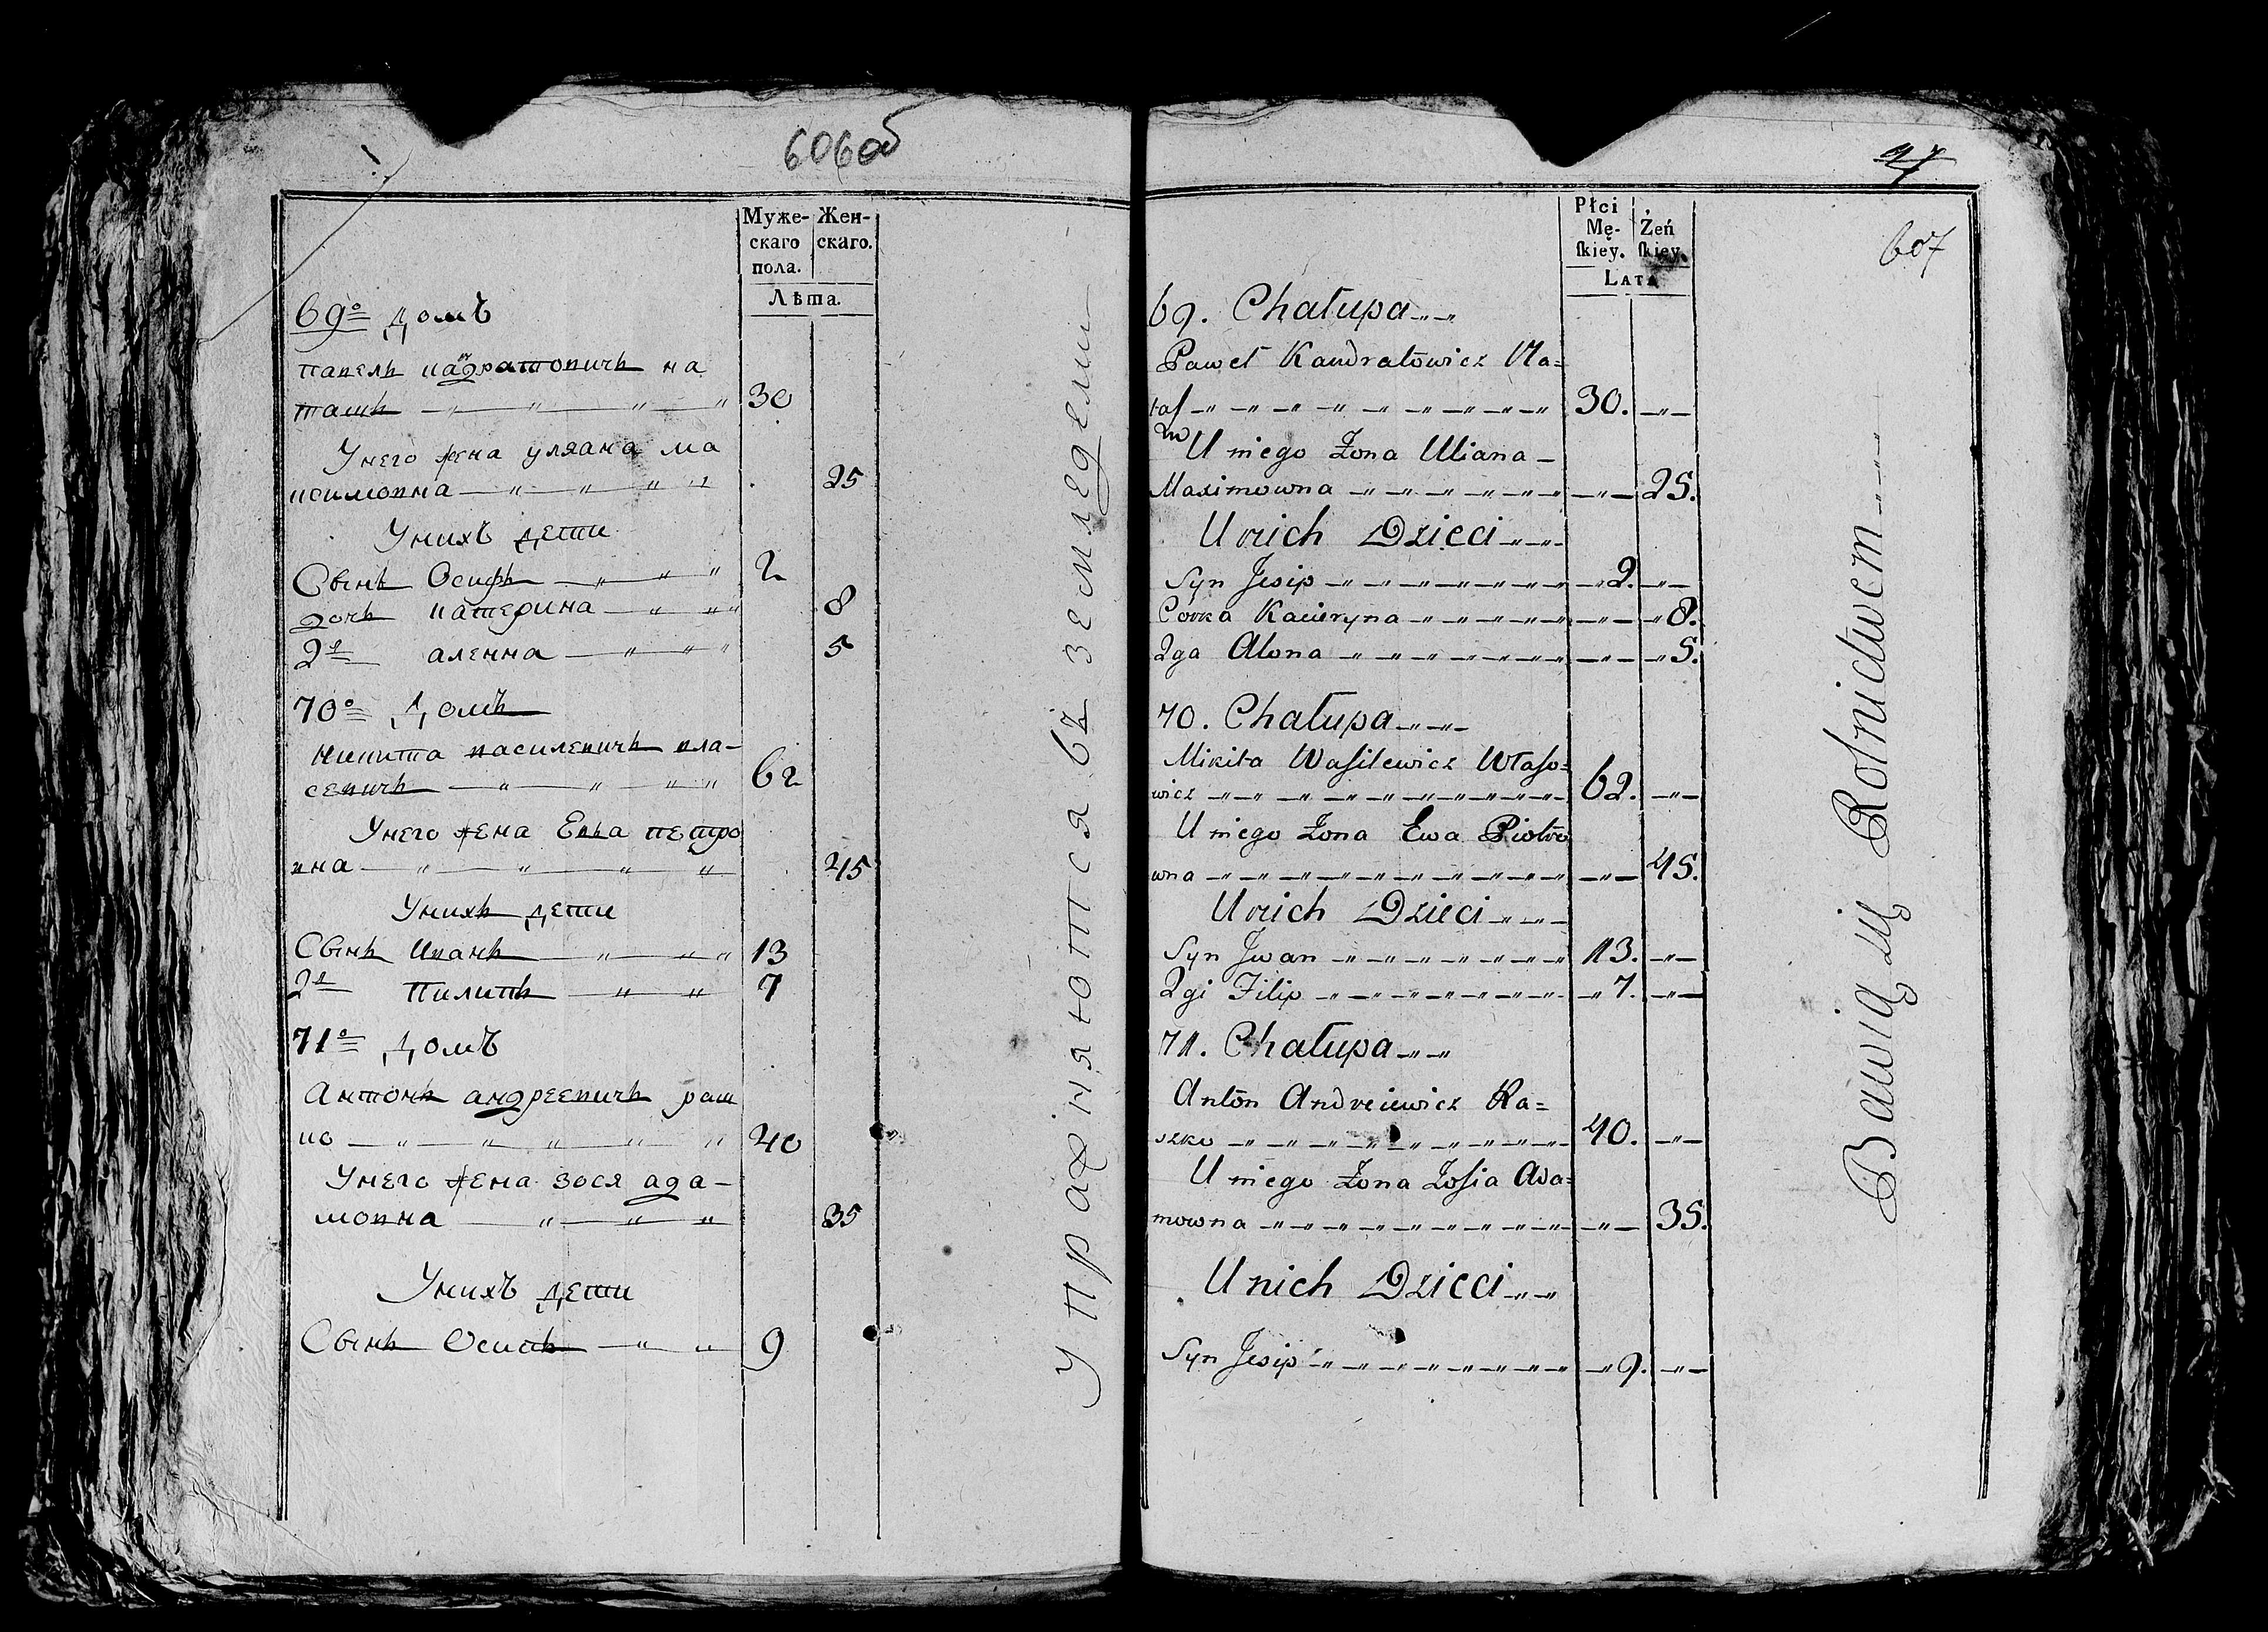 606об
Муже-
скаго
пола.
Жен-
скаго.
Лѣта.
69о домъ
Павелъ Кандратовичъ На
ташъ 30
У него жена Уляана Ма
ксимовна 25
У нихъ дети
Сынъ Осифъ 2
дочъ Катерина 8
2я аленна 5
70о домъ
Микита Василевичъ Вла-
севичъ 62
У него жена Евва Петро
вна 45
У нихъ дети
Сынъ Иванъ 13
2й Пилипъ 7
71о домъ
Антонъ андреевичъ раш
ко 40
У него жена зося ада-
мовна 35
У нихъ дети
Сынъ Осипъ 9
упражняются въ земледелии
27
607
Płci
Mę-
ſkiey.
Żeń
ſkiey.
LATA
69. Chałupa
Paweł Kandratowicz Na=
taſz 30.
U niego Żona Uliana
Maximowna 25.
U nich Dzieci
Syn Jesip 2.
Córka Kacieryna 8.
2ga Alona 5.
70. Chałupa
Mikita Waſilewicz Właſo=
wicz 62.
U niego Żona Ewa Piotro
wna 45.
U nich Dzieci
Syn Jwan 13.
2gi Filip 7.
71. Chałupa
Anton Andreiewicz Ra=
szko 40.
U niego Żona Zoſia Ada=
mowna 35.
U nich Dzieci
Syn Jesip 9.
Bawią się Rolnictwem